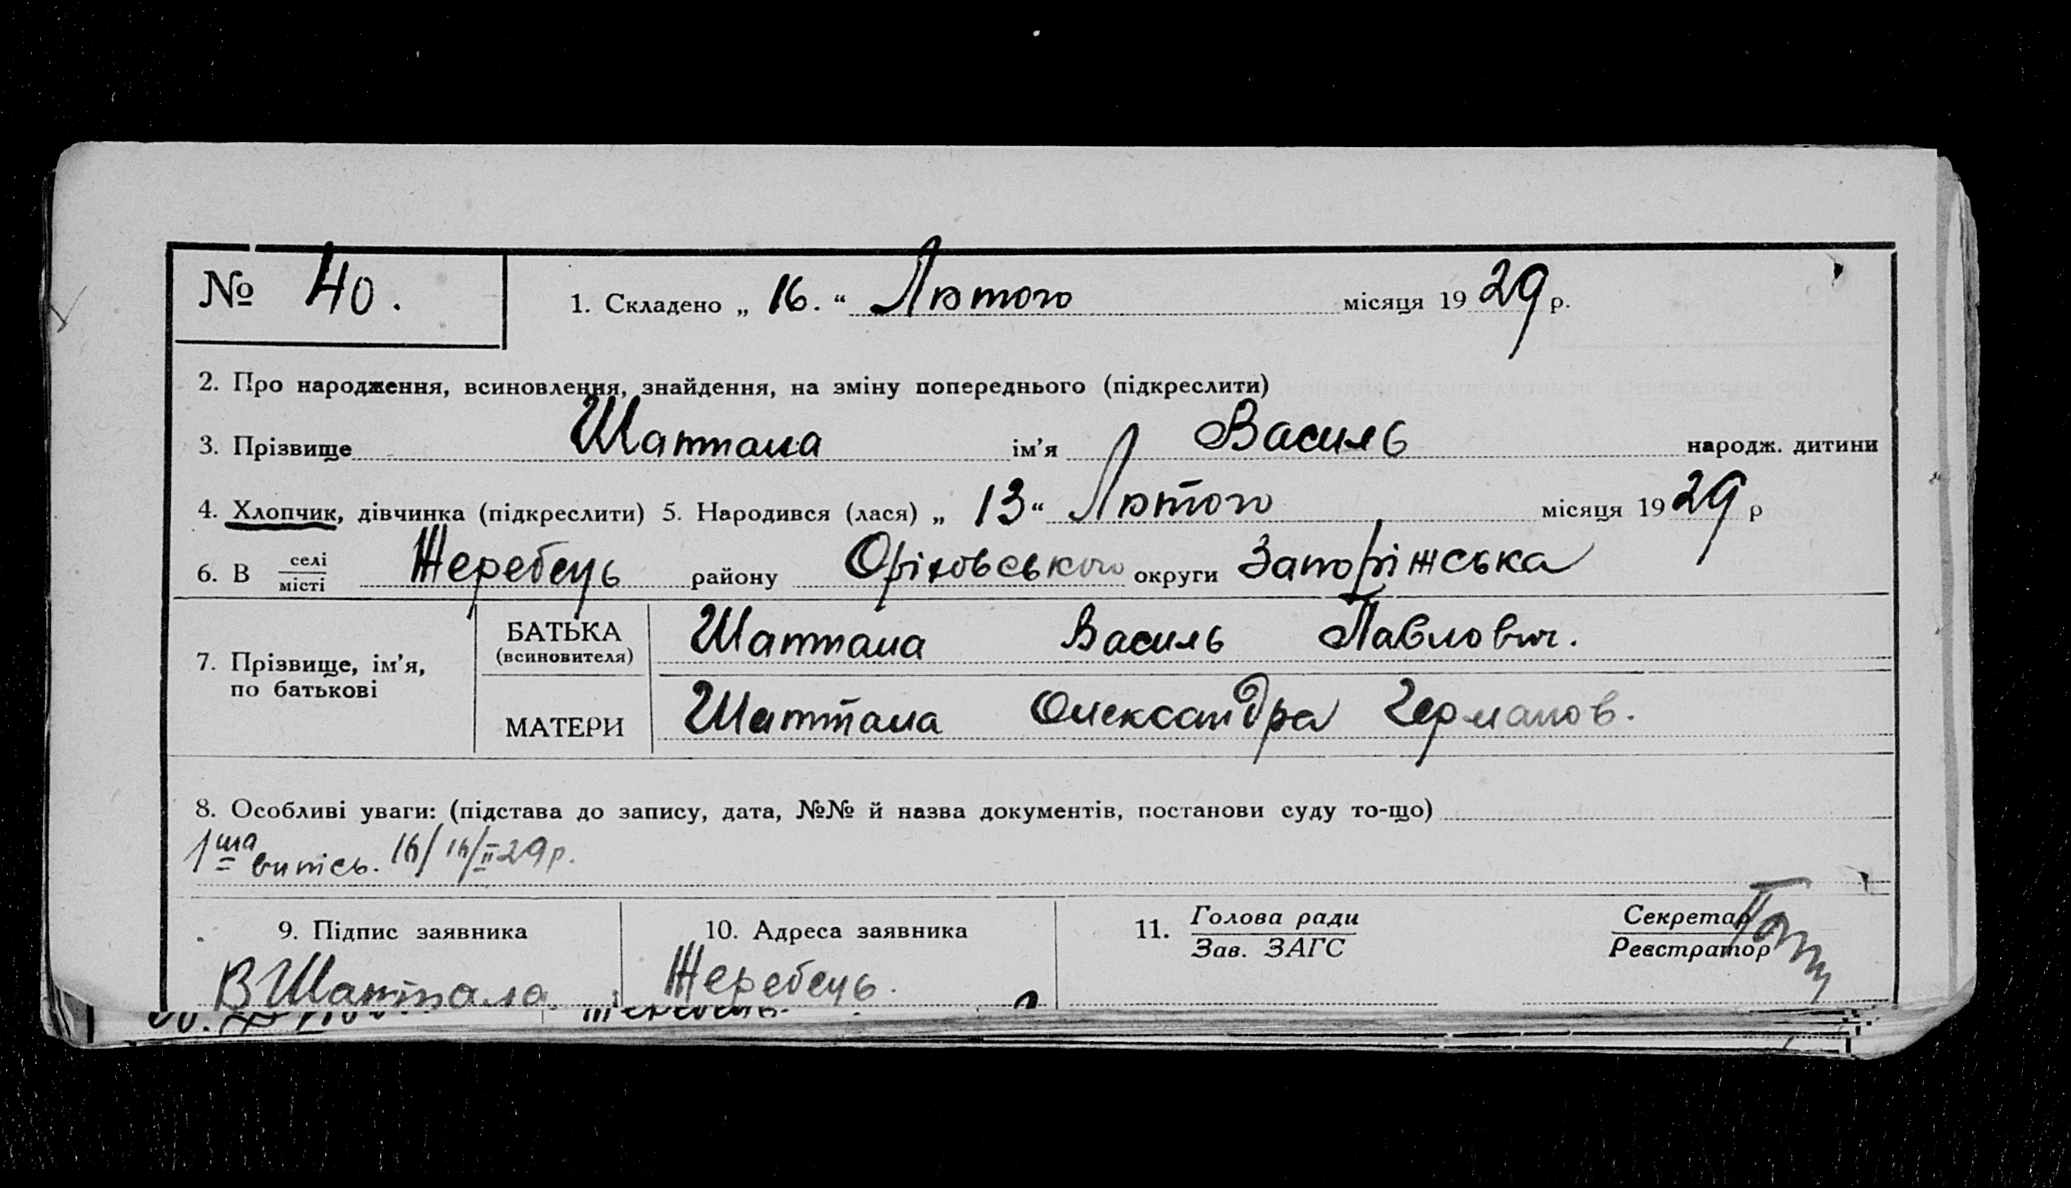 № 40. 1. Складено „ 16. “ Лютого місяця 1929 р.
2. Про народження, всиновлення, знайдення, на зміну попереднього (підкреслити)
3. Прізвище Шаттала ім’я Василь народж. дитини
4. Хлопчик, дівчинка (підкреслити) 5. Народився (лася) „ 13 “ Лютого місяця 1929 р
6. В селі
місті Жеребець району Оріховського округи Запоріжська
7. Прізвище, ім’я,
по батькові
БАТЬКА
(всиновителя) Шаттала Василь Павлович.
МАТЕРИ Шаттала Олександра Германов.
8. Особливі уваги: (підстава до запису, дата, №№ й назва документів, постанови суду то-що)
1ша випись. 16/ 16/II 29 р.
9. Підпис заявника 10. Адреса заявника 11. Голова ради Секретар
Зав. ЗАГС Реєстратор
В Шаттала Жеребець.